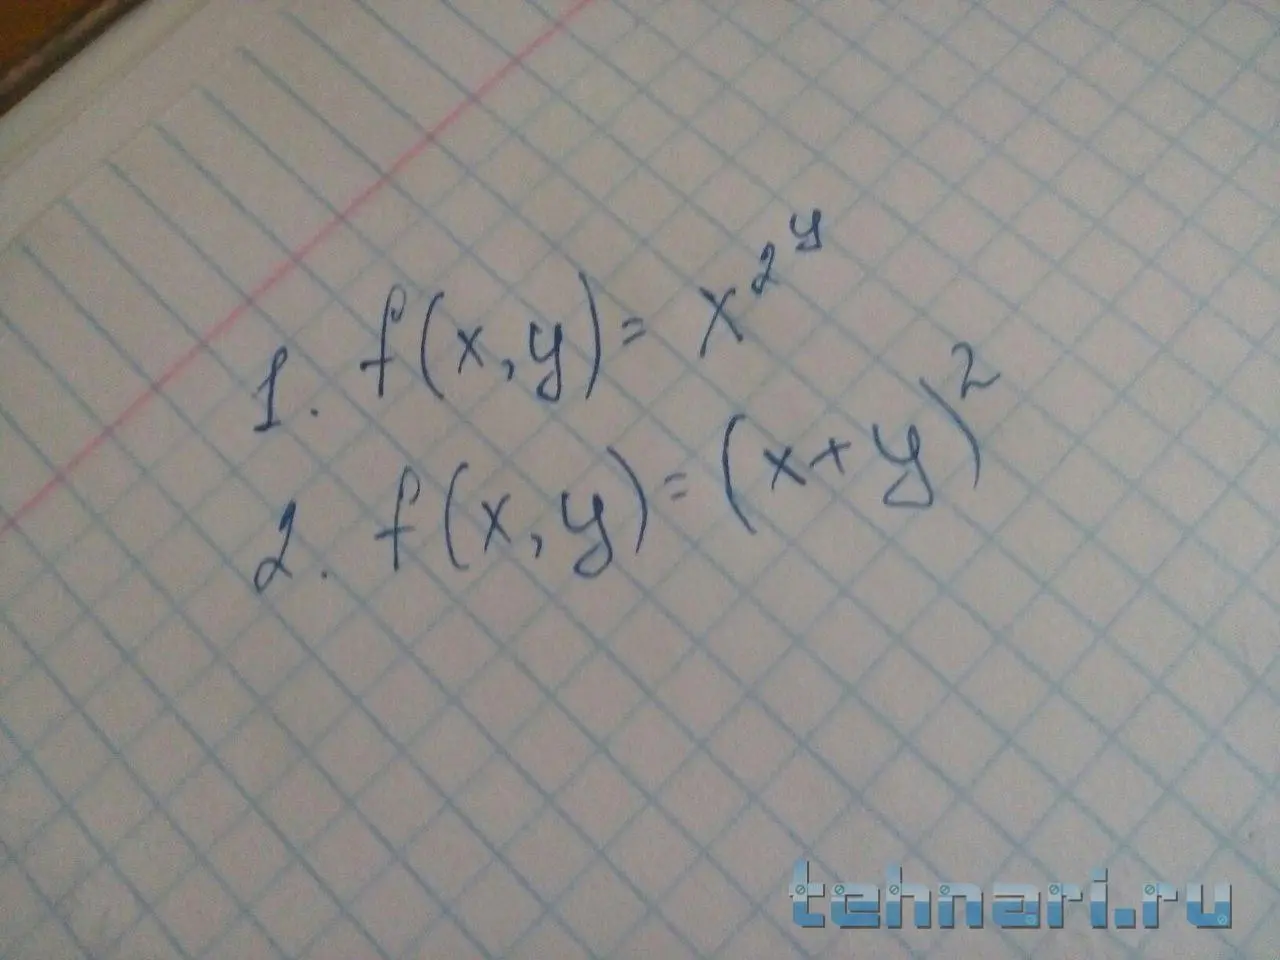 1. f(x,y)= x^{2^{y}}
2. f(x,y)=(x+y)^{2}
tehnari.ru